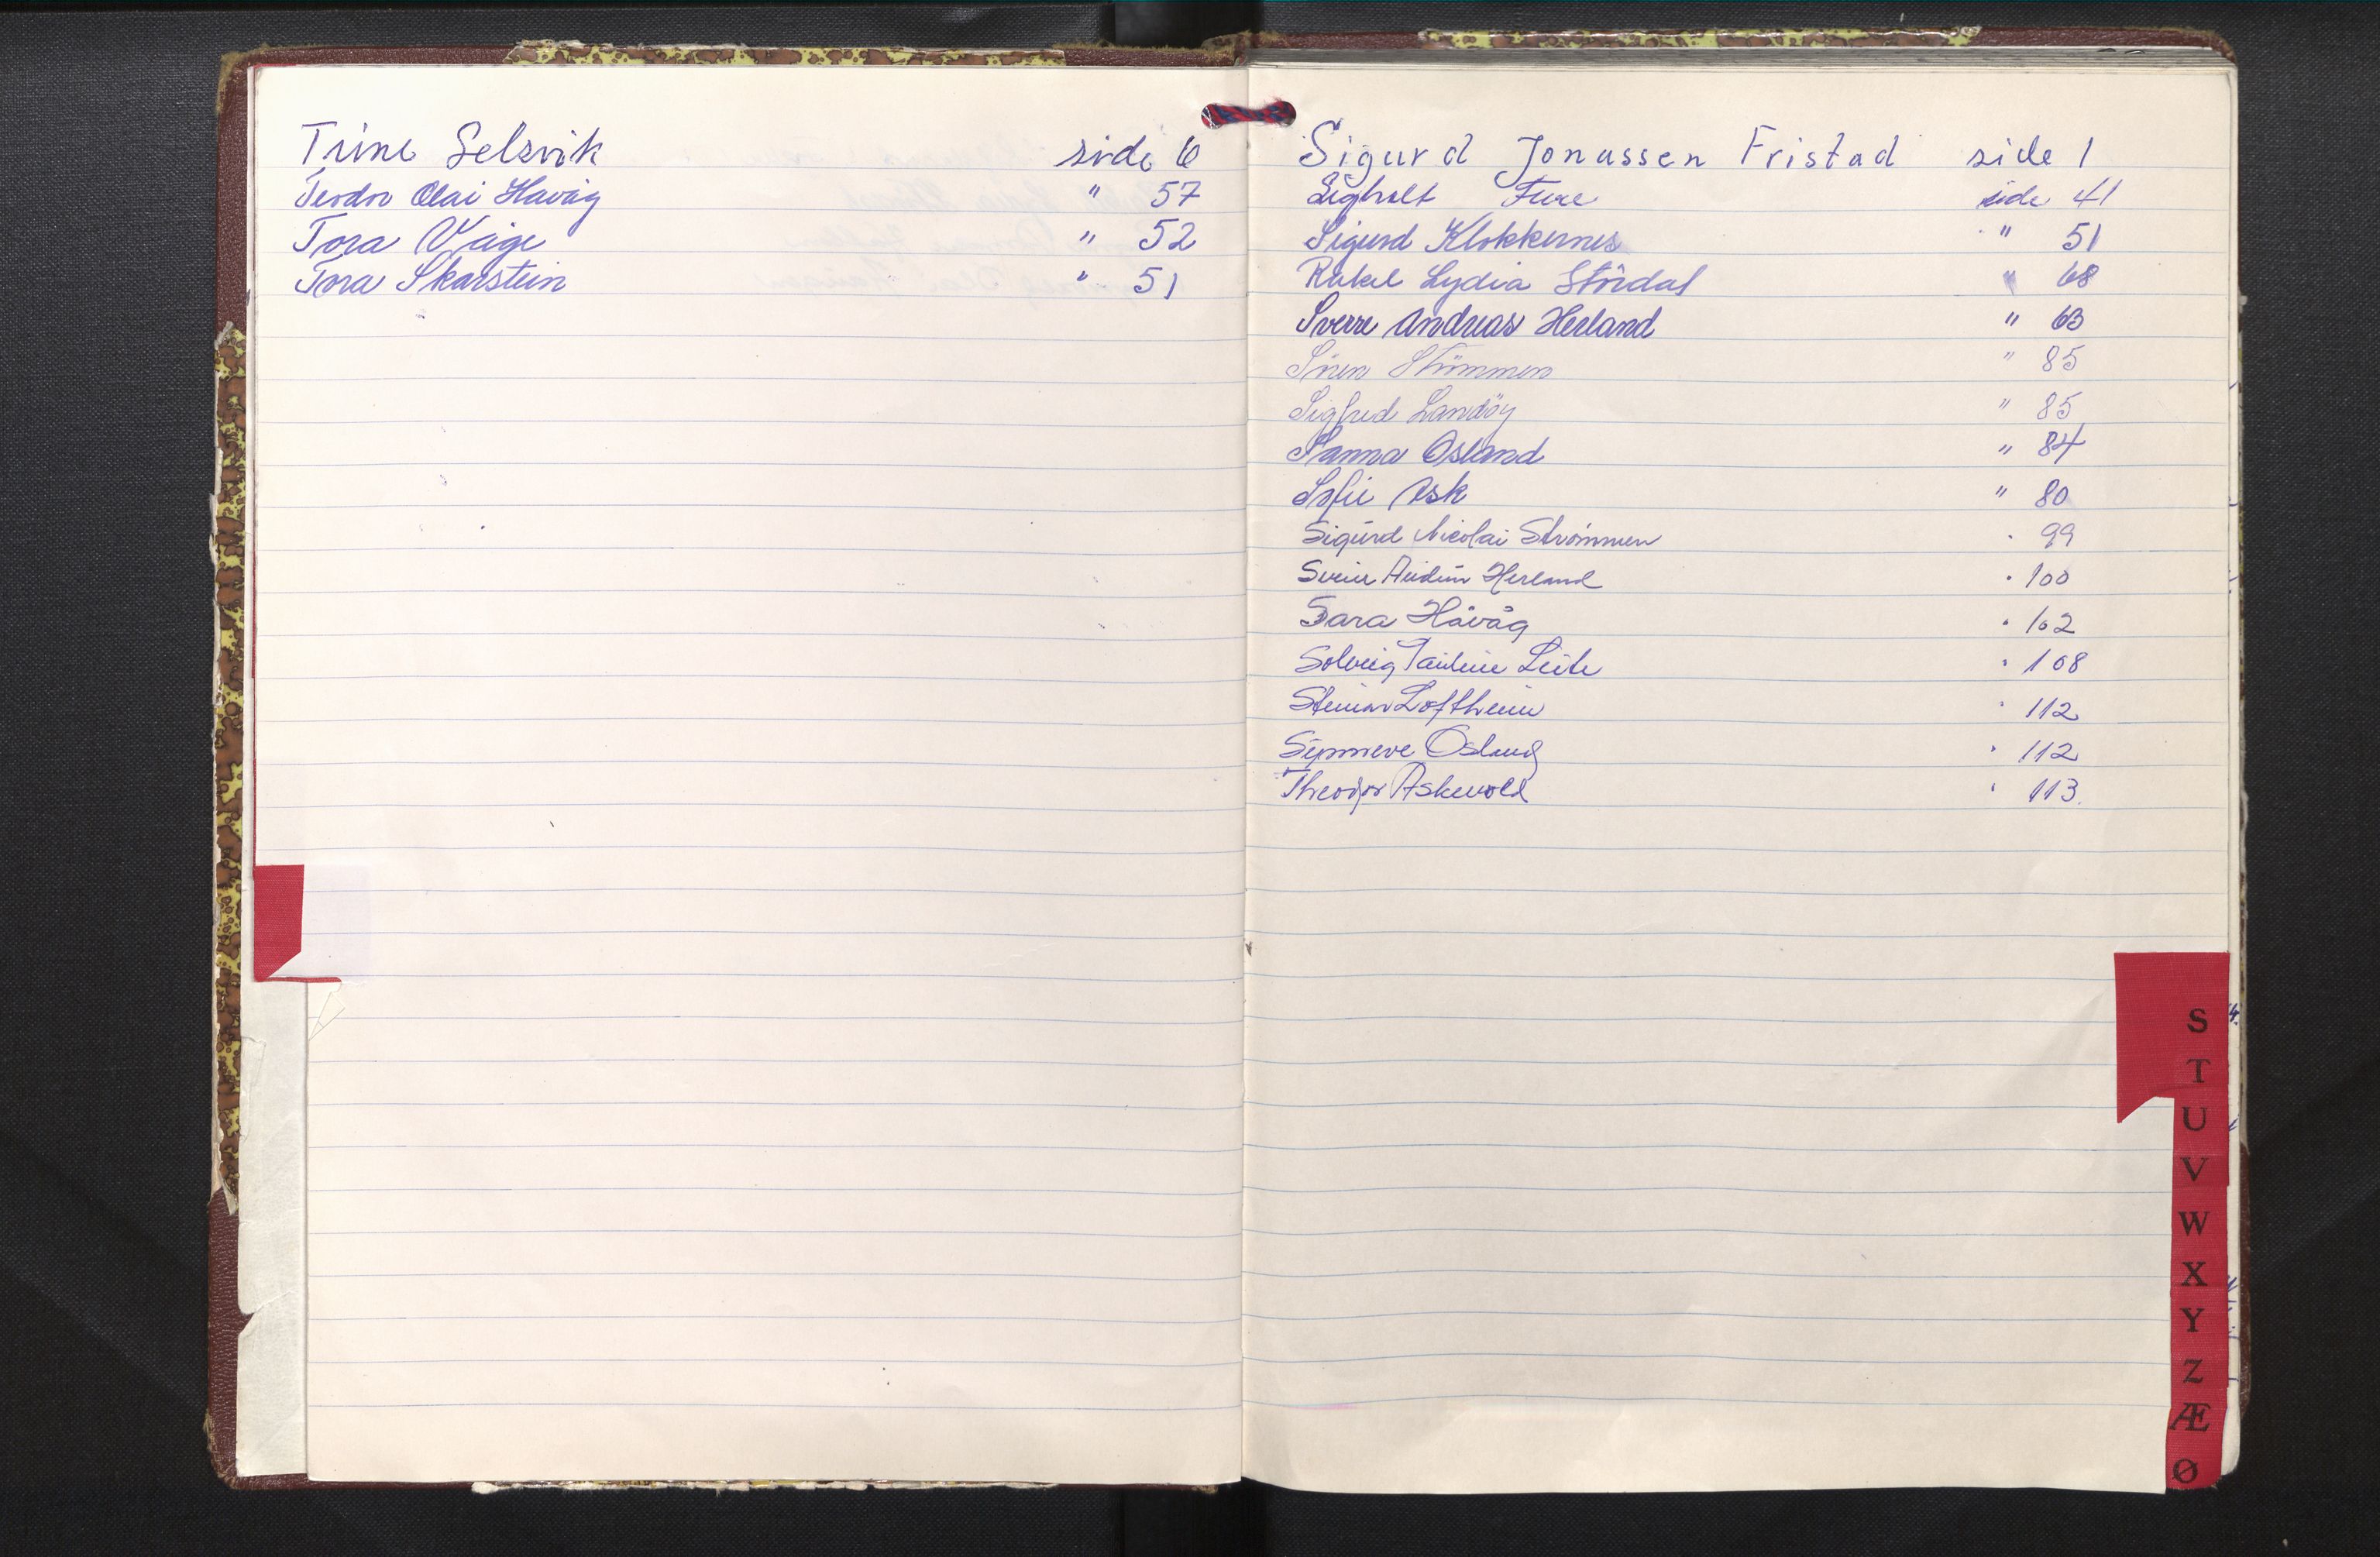 Trine Selsvik side 6
Teodor Olai Håvåg " 57
Tora Våge " 52
Tora Skarstein " 51
Sigurd Jonassen Fristad side 1
Sighalt Fure side 41
Sigurd Klokkernes " 51
Rakel Lydia Stördal " 68
Sverre Andreas Herland " 63
Sören Strömmen " 85
Sigfred Landöy " 85
Sanna Osland " 84
Sofie Ask " 80
Sigurd Nicolai Strømmen " 99
Svein Audun Herland " 100
Sara Håvåg " 102
Solveig Pauline Leite " 108
Steinar Loftheim " 112
Synneve Osland " 112
Theodor Askevold " 113.
S
T
U
V
W
X
Y
Z
Æ
Ø